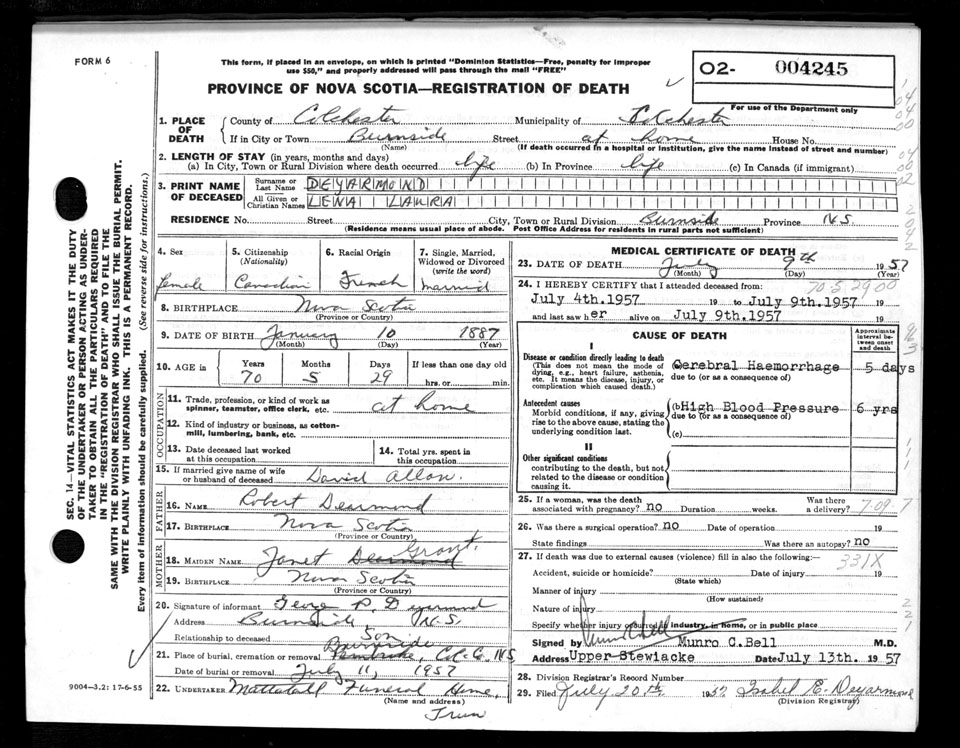 FORM 6
This form, if placed in an envelope, on which is printed "Dominion Statistics—Free, penalty for improper
use $50," and properly addressed will pass through the mail "FREE"
PROVINCE OF NOVA SCOTIA—REGISTRATION OF DEATH
O2- 004245
For use of the Department only
1. PLACE OF DEATH
County of Colchester Municipality of Colchester
If in City or Town Burnside Street at home House No.
(Name) (If death occurred in a hospital or institution, give the name instead of street and number)
2. LENGTH OF STAY (in years, months and days)
(a) In City, Town or Rural Division where death occurred life (b) In Province life (c) In Canada (if immigrant)
3. PRINT NAME OF DECEASED
Surname or Last Name DEYARMOND
All Given or Christian Names LENA LAURA
RESIDENCE No. Street City, Town or Rural Division Burnside Province N.S.
(Residence means usual place of abode. Post Office Address for residents in rural parts not sufficient)
4. Sex
female
5. Citizenship
(Nationality)
Canadian
6. Racial Origin
French
7. Single, Married, Widowed or Divorced
(write the word)
married
8. BIRTHPLACE Nova Scotia
(Province or Country)
9. DATE OF BIRTH January 10 1887
(Month) (Day) (Year)
10. AGE in Years Months Days If less than one day old
70 5 29 hrs. or min.
OCCUPATION
11. Trade, profession, or kind of work as
spinner, teamster, office clerk, etc. at home
12. Kind of industry or business, as cotton-
mill, lumbering, bank, etc.
13. Date deceased last worked
at this occupation
14. Total yrs. spent in
this occupation
15. If married give name of wife
or husband of deceased David Allan
FATHER
16. NAME Robert Dearmond
17. BIRTHPLACE Nova Scotia
(Province or Country)
MOTHER
18. MAIDEN NAME Janet Grant
19. BIRTHPLACE Nova Scotia
(Province or Country)
20. Signature of informant George P. Deyarmond
Address Burnside, N.S.
Relationship to deceased Son
Burnside
21. Place of burial, cremation or removal Pembroke, Col. Co. N.S.
Date of burial or removal July 11, 1957
22. UNDERTAKER Mattatall Funeral Home,
(Name and address)
Truro
9004—3.2: 17-6-55
MEDICAL CERTIFICATE OF DEATH
23. DATE OF DEATH July 9th 1957
(Month) (Day) (Year)
70-5-29 00
24. I HEREBY CERTIFY that I attended deceased from:
July 4th.1957 19 to July 9th.1957 19
and last saw her alive on July 9th.1957
CAUSE OF DEATH
Approximate interval between onset and death
I
Disease or condition directly leading to death
(This does not mean the mode of
dying, e.g., heart failure, asthenia,
etc. It means the disease, injury, or
complication which caused death.)
Cerebral Haemorrhage 5 days
due to (or as a consequence of)
Antecedent causes
Morbid conditions, if any, giving
rise to the above cause, stating the
underlying condition last.
(b) High Blood Pressure 6 yrs
due to (or as a consequence of)
(c)
II
Other significant conditions
contributing to the death, but not
related to the disease or condition
causing it.
25. If a woman, was the death
associated with pregnancy? no Duration weeks. Was there
a delivery?
7-09
26. Was there a surgical operation? no Date of operation 19
State findings Was there an autopsy? no
27. If death was due to external causes (violence) fill in also the following:—
331X
Accident, suicide or homicide? Date of injury 19
(State which)
Manner of injury
(How sustained)
Nature of injury
Specify whether injury occurred in industry, in home, or in public place
Signed by Munro C. Bell M.D.
Address Upper Stewiacke Date July 13th. 1957
28. Division Registrar's Record Number
29. Filed July 20th, 1957 Isabel E. Deyarmond
(Division Registrar)
SEC. 14—VITAL STATISTICS ACT MAKES IT THE DUTY
OF THE UNDERTAKER OR PERSON ACTING AS UNDER-
TAKER TO OBTAIN ALL THE PARTICULARS REQUIRED
IN THE "REGISTRATION OF DEATH" AND TO FILE THE
SAME WITH THE DIVISION REGISTRAR WHO SHALL ISSUE THE BURIAL PERMIT.
WRITE PLAINLY WITH UNFADING INK. THIS IS A PERMANENT RECORD.
Every item of information should be carefully supplied. (See reverse side for instructions.)